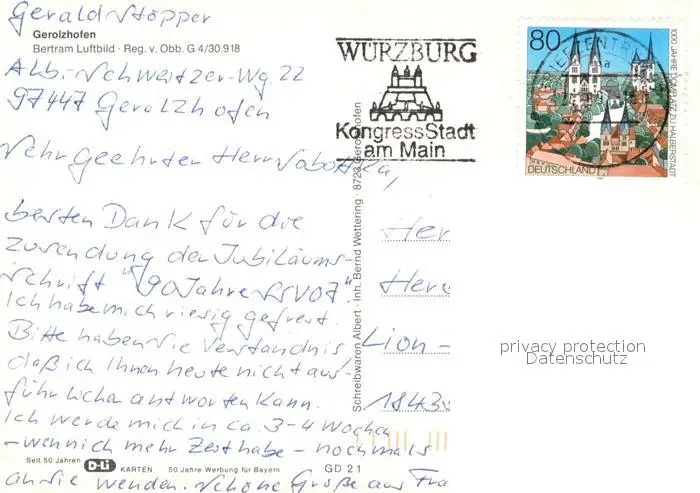 Gerald Stöpper
Gerolzhofen
Bertram Luftbild · Reg. v. Obb. G 4/30.918
Alb.-Schweitzer-Wg. 22
97447 Gerolzhofen
Sehr Geehrter Herr Sabottka,
besten Dank für die
Zusendung der Jubiläums-
schrift "90 Jahre SSV07".
Ich habe mich riesig gefreut.
Bitte haben Sie Verständnis
daß ich Ihnen heute nicht aus-
führlicher antworten kann.
Ich werde mich in ca. 3-4 Wochen
- wenn ich mehr Zeit habe - nochmals
an Sie wenden. Schöne Grüße aus Fra
Seit 50 Jahren D-Li KARTEN 50 Jahre Werbung für Bayern GD 21
Schreibwaren Albert · Inh. Bernd Wettering · 8723 Gerolzhofen
WÜRZBURG
KongressStadt
am Main
80
1000 JAHRE DOMPLATZ ZU HALBERSTADT
DEUTSCHLAND
Her
Her
Lion-
1843
privacy protection
Datenschutz